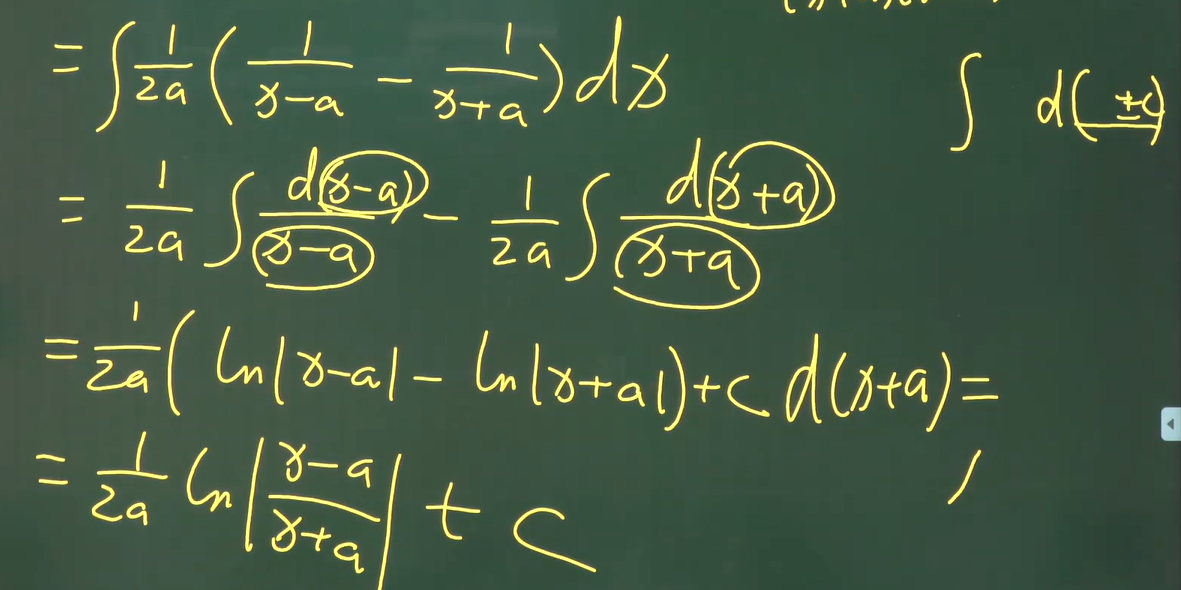 = ∫ 1/2a ( 1/x-a - 1/x+a ) dx
∫ d( ±c)
= 1/2a ∫ d(x-a)/x-a - 1/2a ∫ d(x+a)/x+a
= 1/2a ( ln|x-a| - ln|x+a| ) + c d(x+a) =
= 1/2a ln | x-a/x+a | + c